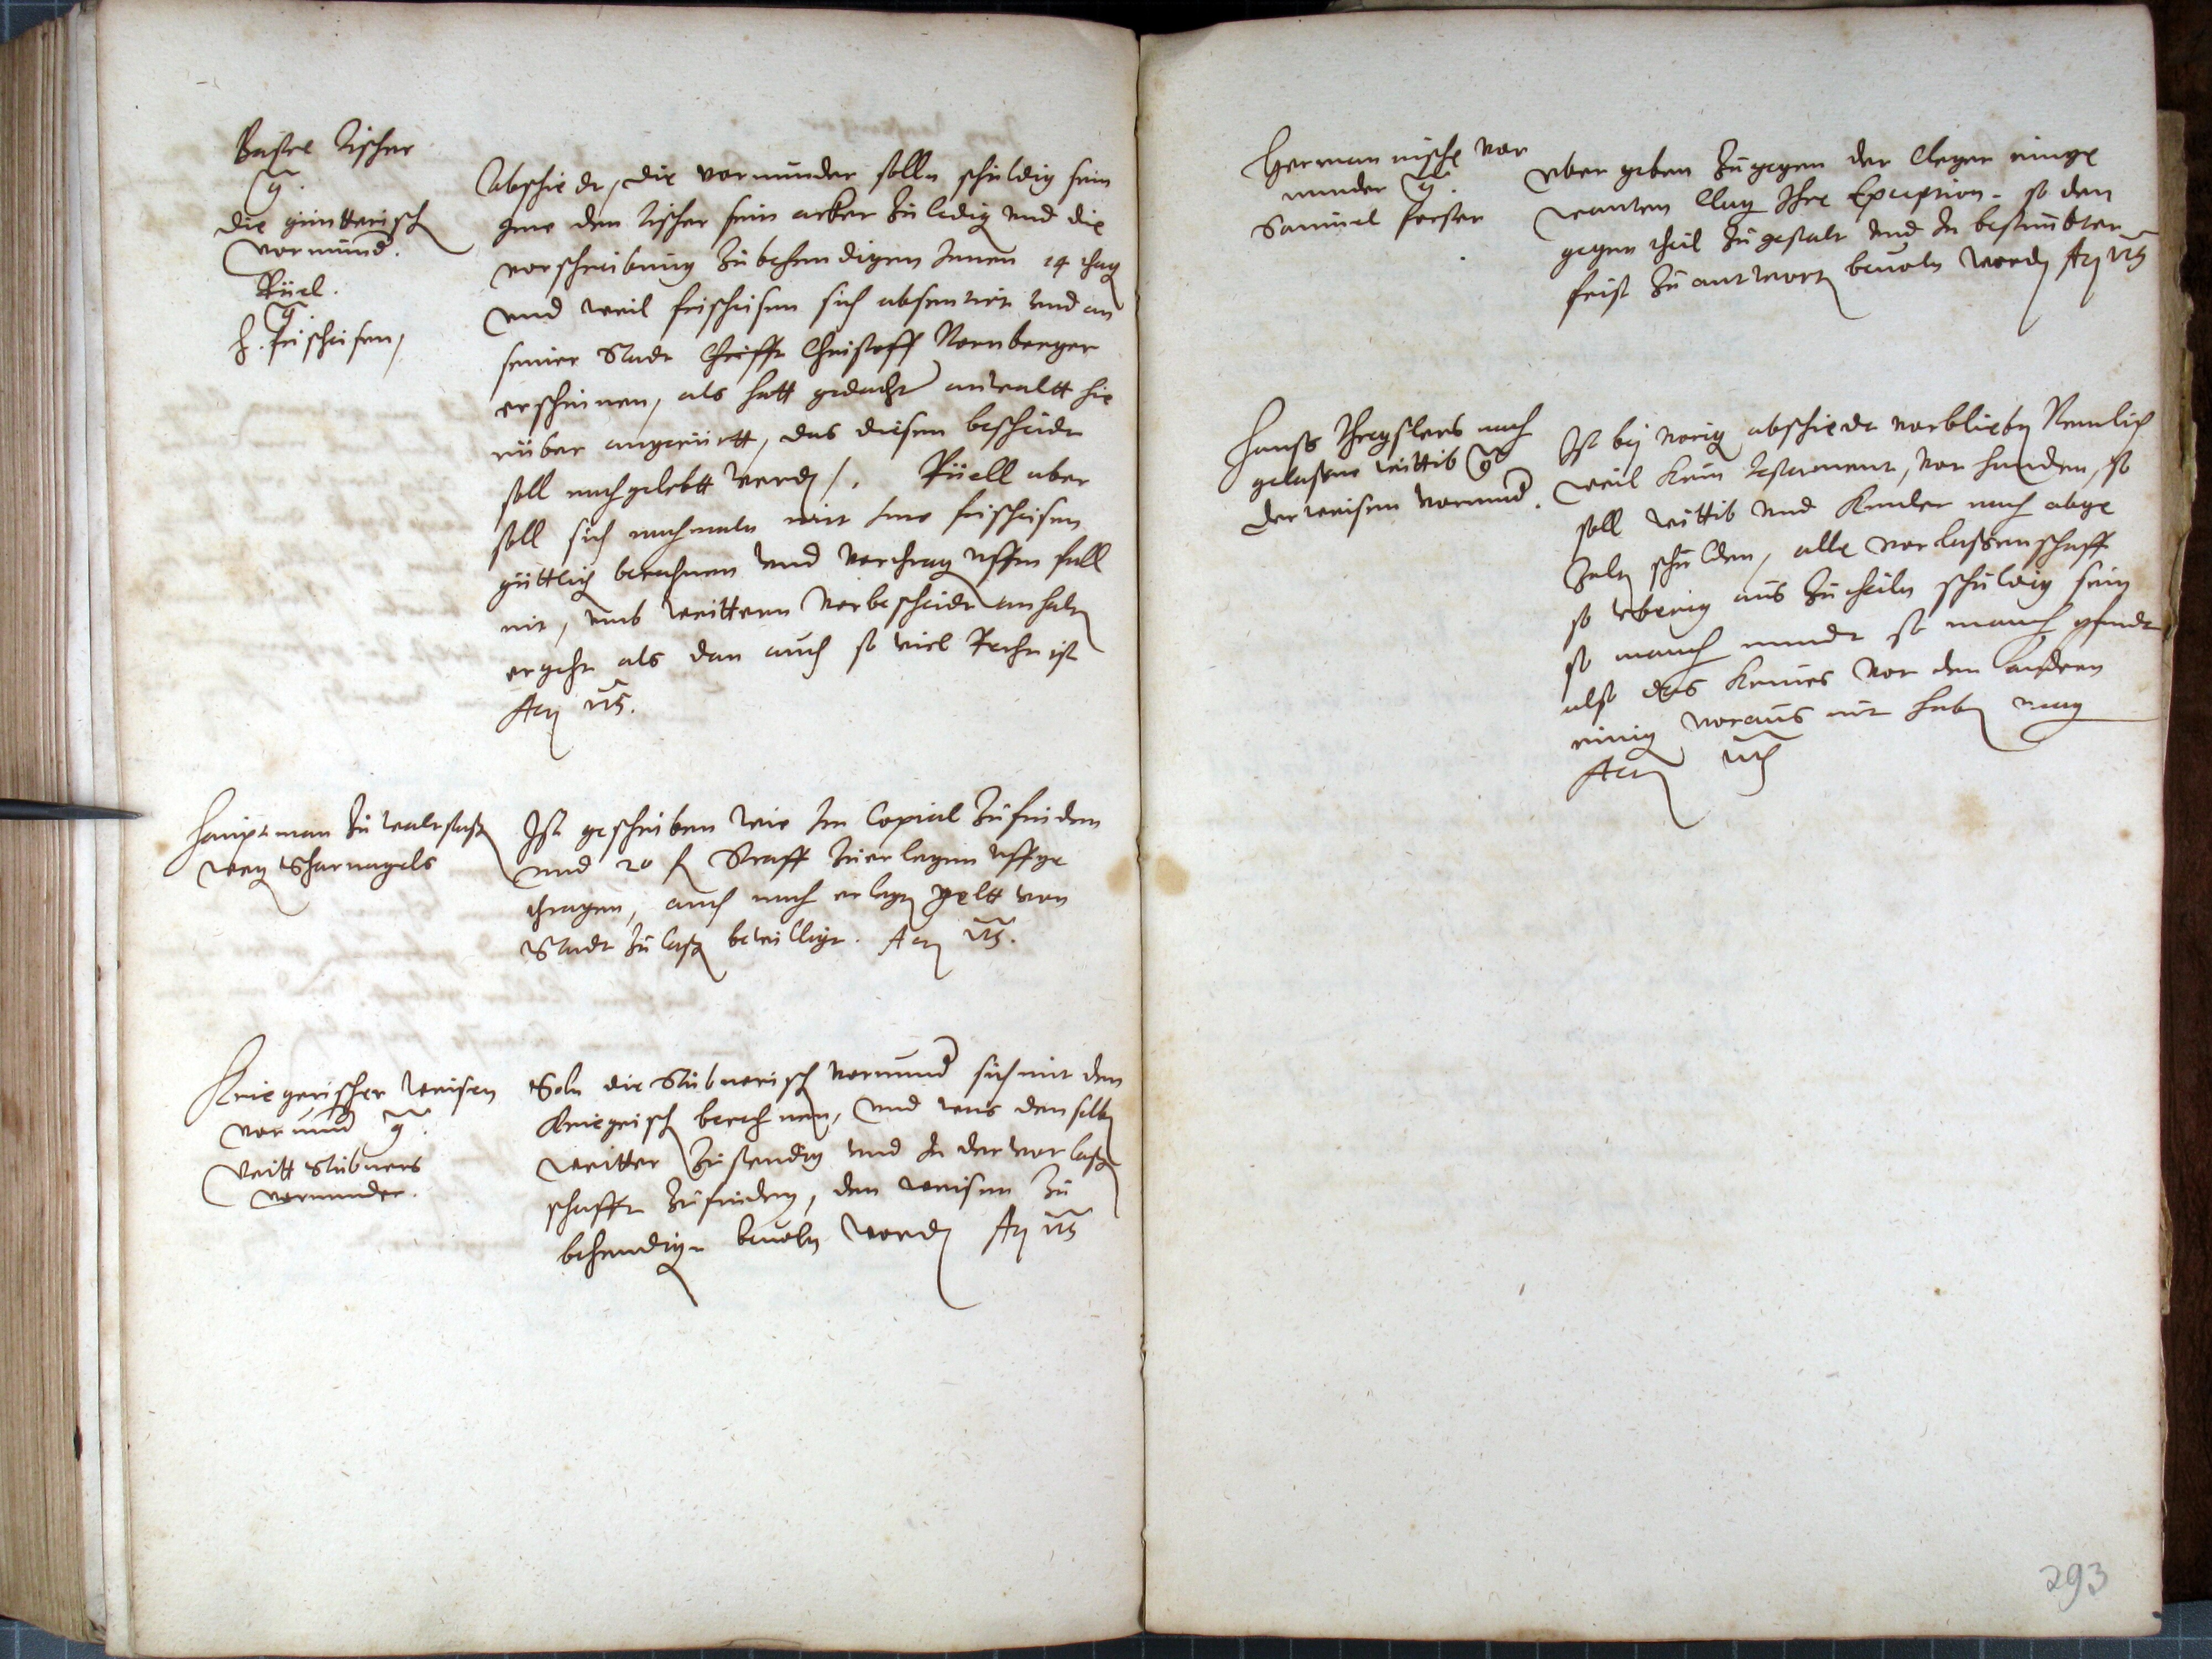 Bastel Tischer
g.
die günterisch
vormund.
Rüel.
g.
H. Frischeisen,
Abschiedt, die vormunder solln schuldig sein
gme den Tischer sein acker zu ledig und die
vorschreibung zubehendigen Innen 14 thag
und weil frischeisen sich absentirt und an
seiner Stadt Chrifft Christoff Nornberger
erschinen, als hatt gedacht anwaltt hie
rüber angerürtt, das diesem bescheidt
soll nachgelebtt werdn /. Rüell aber
soll sich nachmaln mit Ime frischeisen
güttlich berechnen und vorthrag uffm fall
nit, umb weittern vorbescheidt anhaltn
ergeht als dan auch so viel Recht ist
Actn uts.
Hauptman zu waltsassn
wegn Scharnagels
Ist geschriben wie Im Copial zufinden
und 20 fl Straff zuerlegen uffge
thragen, auch nach erlegtn geltt von
Stadt zu lassn bewilligt. Actn uts.
Kriegerischer weisen
vormund g.
Veitt Stübners
vormunder.
Soln die Stübnerisch vormund sich mit den
Kriegrisch berechnen, und was denselbn
weitter zustendig und In der vorlassn
schafft zufinden, den weisen zu
behendign bevoln wordn Actn uts
Hermannische vor
munder g.
Samuel forster
ubergeben zugegen der Cleger einge
wanten Clag Ihre Exception. so dem
gegentheil zugestalt und In bestimbter
frist zu antwortn bevoln wordn Actn uts
Hanss Threxlers nach
gelassene wittib g
der weisen vormund.
Ist bey vorig abschiedt vorbliebn Nemlich
weil kein testament, vorhanden, so
soll wittib und Kinder nach abge
zaltn schulden, alle vorlassenschafft
so uberig aus zutheiln schuldig sein
so manch mundt so manch pfundt
also das keines vor dem andern
einig voraus nit habn mag
Actn uts
293